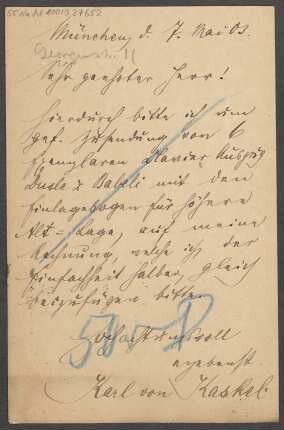 55 Nachl 100/B,27652
München, d. 7. Mai 03.
Georgenstr. 11
Sehr geehrter Herr!
Hierdurch bitte ich um
gef. Zusendung von 6
Exemplaren Klavier Auszug
Dusle & Babeli mit den
Einlagebogen für höhere
Alt-Lage, auf meine
Rechnung, welche ich der
Einfachheit halber, gleich
beizufügen bitte.
Hochachtungsvoll
ergebenst
Karl von Kaskel.